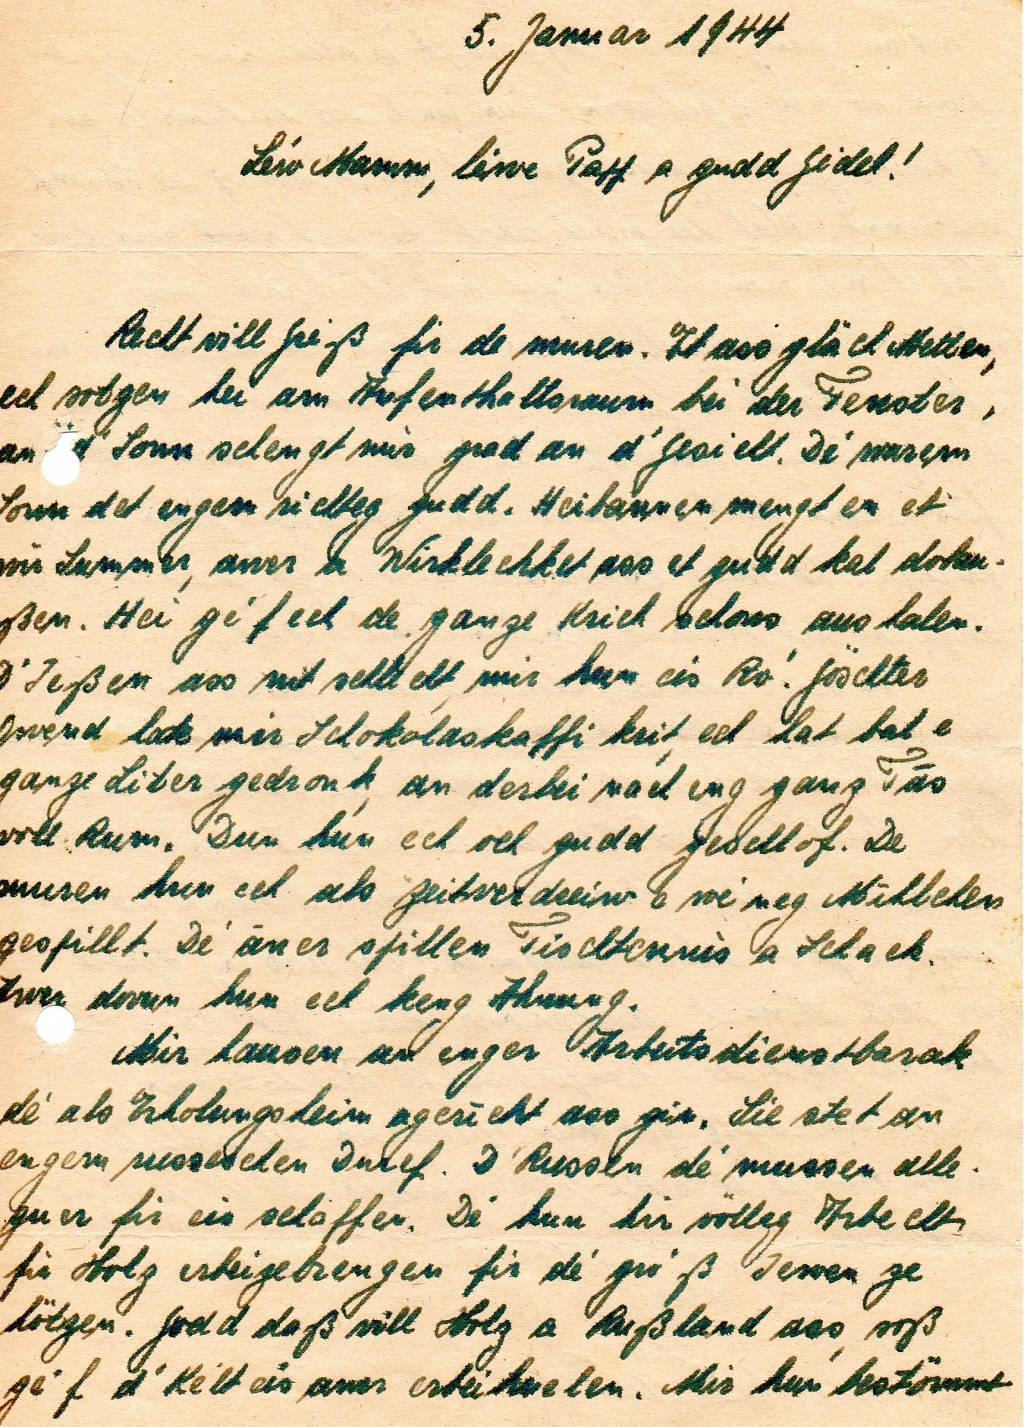 5. Januar 1944
Léiw Mamm, léiwe Papp a gudd Jidel!
Recht vill Gréiß fir de muren. Et ass gläch Metten,
ech sötzen hei am Aufenthaltsraum bei der Fenster,
an d'Sonn schengt mir grad an d'Gesicht. Dé warem
Sonn det engem richteg gudd. Heibannen mengt en et
wir Summer, awer a Wirklechket ass et gudd kal dobau-
ßen. Hei géif ech de ganze Krich schons aushalen.
D'Ießen ass nit schlecht, mir hun eis Ro'. Göschter
Owend hate mir Schokolaskaffi krit, ech hat bal e
ganze Liter gedronk, an derbei nach eng ganz Tas
voll Rum. Dun hun ech och gudd geschlof. De
muren hun ech als Zeitverdreiw e wéineg Mühlchen
gespillt. Dé áner spillen Tischtennis a Schach.
Awer dovun hun ech keng Ahnung.
Mir hausen an enger Arbeitsdienstbarak
dé als Erholungsheim ageriicht ass gin. Sie stet an
engem russeschen Duerf. D'Russen dé mussen alle-
guer fir eis schaffen. Dé hun hir völleg Arbecht
fir Holz erbeizebrengen fir dé gro'ß Iewen ze
hötzen. Godd daß vill Holz a Rußland ass, soß
géif d'Kelt eis awer erbeihuelen. Mir hun bestömmt